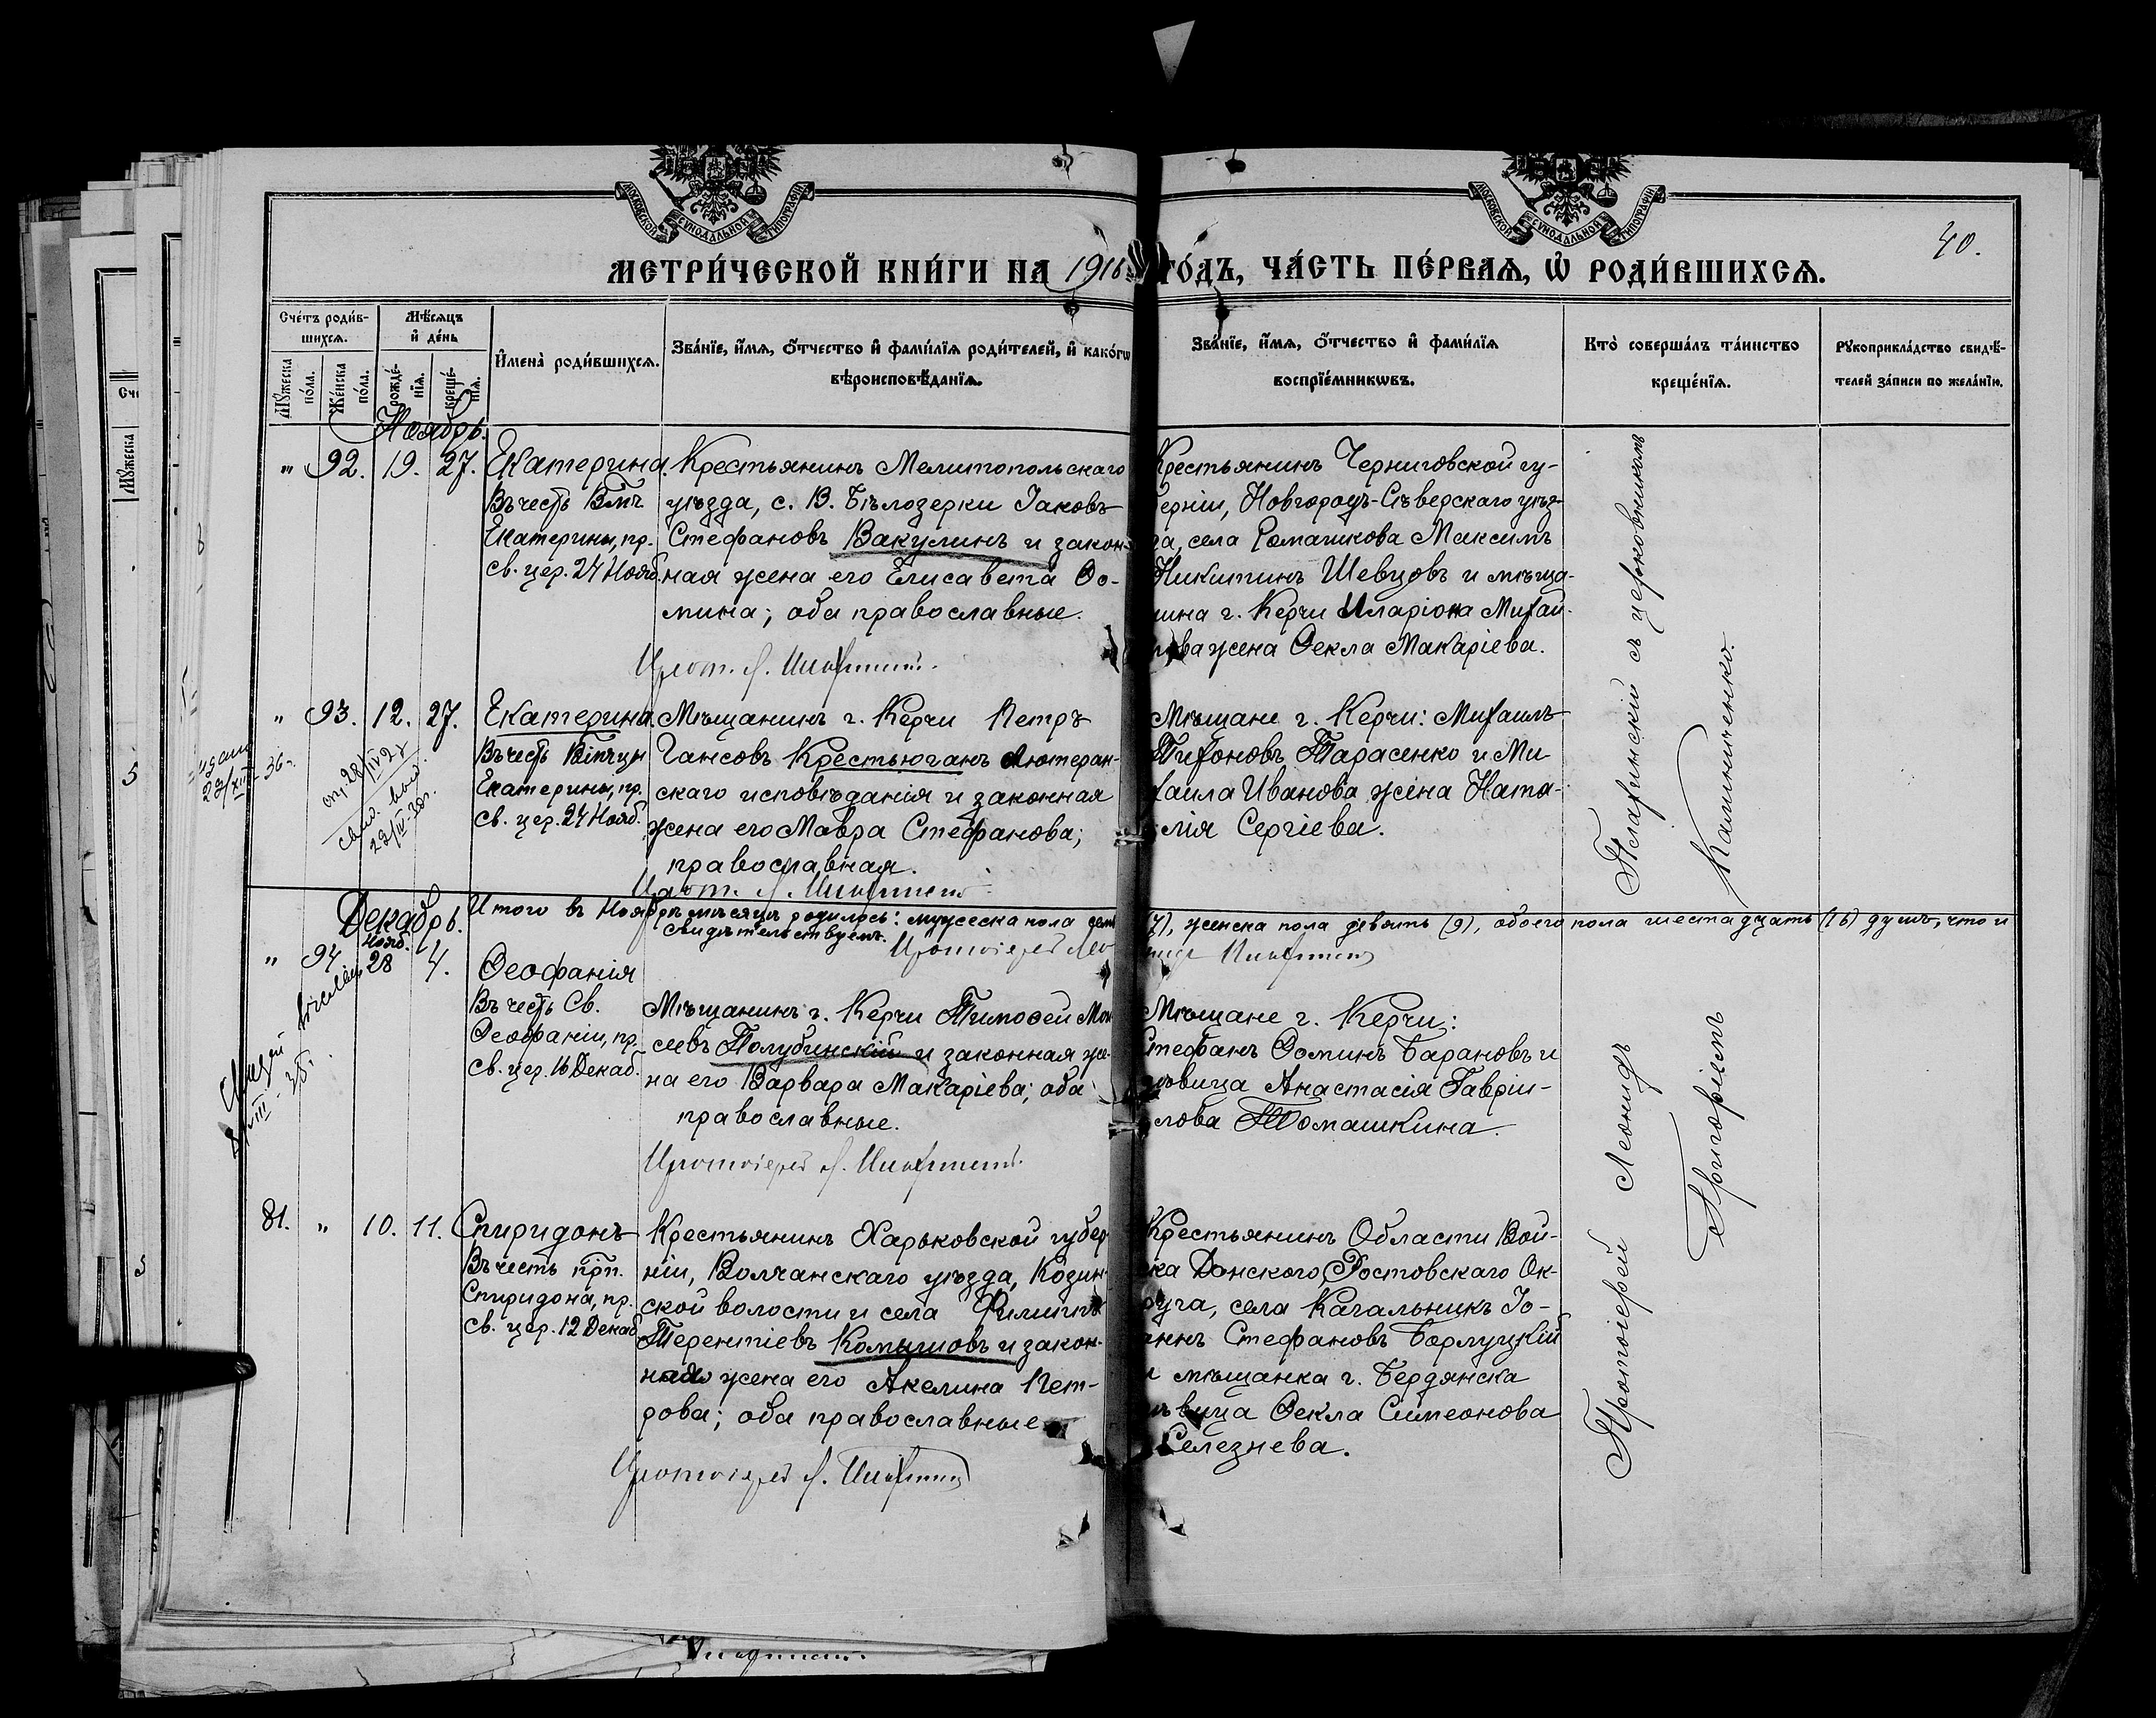 МОСКОВСКОЙ СѴНОДАЛЬНОЙ ТИПОГРАФІИ
МОСКОВСКОЙ СѴНОДАЛЬНОЙ ТИПОГРАФІИ
40.
МЕТРИ́ЧЕСКОЙ КНИ́ГИ НА 1916 ГО́ДЪ, ЧА́СТЬ ПЕ́РВАѦ, Ѽ РОДИ́ВШИХСѦ.
Сче́тъ роди́в-
шихсѧ.
Мꙋ́жеска по́ла.
Же́нска по́ла.
Мѣ́сѧцъ и҆ де́нь
рожде́-нїѧ.
креще́-нїѧ.
И҆мена̀ роди́вшихсѧ.
Зва́нїе, и҆́мѧ, ѻ҆́тчество и҆ фами́лїѧ роди́телей, и҆ како́гѡ
вѣроисповѣ́данїѧ.
Зва́нїе, и҆́мѧ, ѻ҆́тчество и҆ фами́лїѧ
воспрїе́мникѡвъ.
Кто̀ соверша́лъ та́инство
креще́нїѧ.
Рꙋкоприкла́дство свидѣ́-
телей за́писи по жела́нїю.
Ноябрь.
" 92. 19. 27. Екатерина.
Въ честь Вмч.
Екатерины, пр.
св. цер. 24 Нояб.
Крестьянинъ Мелитопольскаго
уѣзда, с. В. Бѣлозерки Іаковъ
Стефановъ Вакулинъ и закон-
ная жена его Елисавета Ѳо-
мина; оба православные.
Крестьянинъ Черниговской гу-
берніи, Новгородъ-Сѣверскаго уѣз-
да, села Ромашкова Максимъ
Никитинъ Шевцовъ и мѣща-
нина г. Керчи Иларіона Михай-
лова жена Ѳекла Макаріева.
Прот. Л.
" 93. 12. 27. Екатерина.
Въ честь Влмчцы
Екатерины, пр.
св. цер. 24 Нояб.
Мѣщанинъ г. Керчи Петръ
Гансовъ Крестьюганъ лютеран-
скаго исповѣданія и законная
жена его Мавра Стефанова;
православная.
Мѣщане г. Керчи: Михаилъ
Тихоновъ Тарасенко и Ми
хаила Иванова жена Ната-
лія Сергіева.
Прот. Л.
Итого въ Ноябрѣ мѣсяцѣ родилось: мужеска пола семь (7), женска пола девять (9), обоего пола шестнадцать (16) душъ, что и
свидѣтельствуемъ.
Протоіерей Леонидъ
Декабрь.
" 94 Нояб. 28 4. Ѳеофанія
Въ честь Св.
Ѳеофаніи, пр.
св. цер. 16 Декаб.
Мѣщанинъ г. Керчи Тимоѳей Мои
сеевъ Полубинскій и законная же-
на его Варвара Макаріева; оба
православные.
Мѣщане г. Керчи:
Стефанъ Ѳоминъ Барановъ и
дѣвица Анастасія Гавріи-
лова Томашкина.
Протоіерей Л.
81. " 10. 11. Спиридонъ
Въ честь прп.
Спиридона, пр.
св. цер. 12 Декаб.
Крестьянинъ Харьковской губер
ніи, Волчанскаго уѣзда, Козин-
ской волости и села Филиппъ
Терентіевъ Комышовъ и закон-
ная жена его Акелина Пет-
рова; оба православные
Крестьянинъ Области Вой-
ска Донского, Ростовскаго Ок-
руга, села Кагальникъ Іо-
аннъ Стефановъ Борлуцкій
и мѣщанка г. Бердянска
дѣвица Ѳекла Симеонова
Селезнева.
Протоіерей Л.
Протоіерей Леонидъ съ церковникомъ
Григоріемъ Калиниченко.